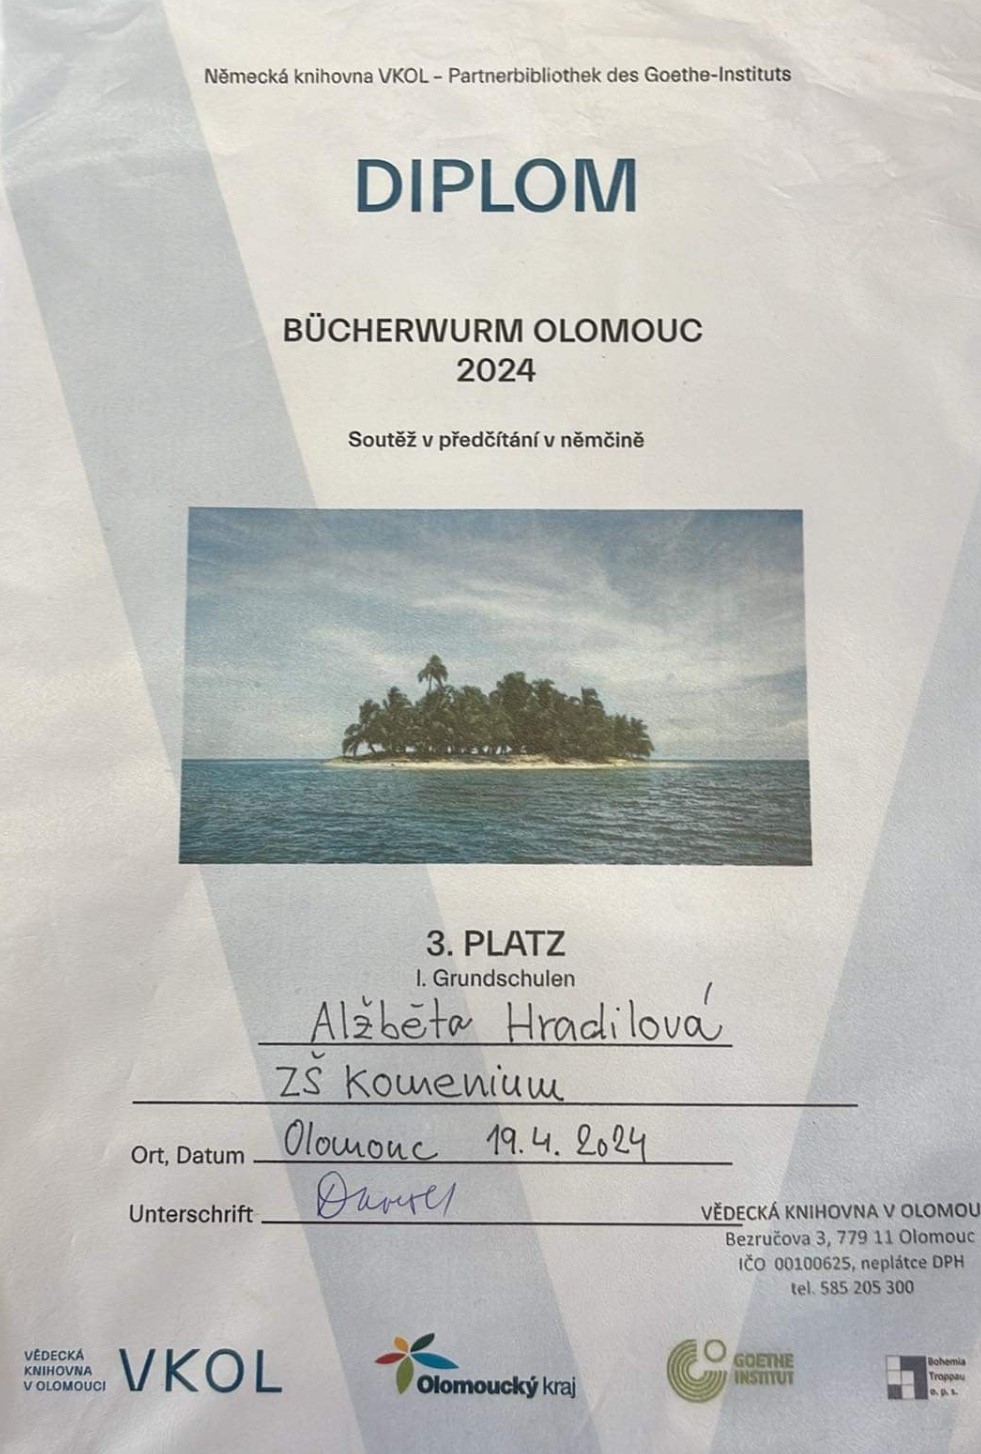 Německá knihovna VKOL – Partnerbibliothek des Goethe-Instituts
DIPLOM
BÜCHERWURM OLOMOUC
2024
Soutěž v předčítání v němčině
3. PLATZ
I. Grundschulen
Alžběta Hradilová
ZŠ Komenium
Ort, Datum Olomouc 19.4. 2024
Unterschrift
VĚDECKÁ KNIHOVNA V OLOMOU
Bezručova 3, 779 11 Olomouc
IČO 00100625, neplátce DPH
tel. 585 205 300
VĚDECKÁ
KNIHOVNA
V OLOMOUCI
VKOL
Olomoucký kraj
GOETHE
INSTITUT
Bohemia
Troppau
o. p. s.